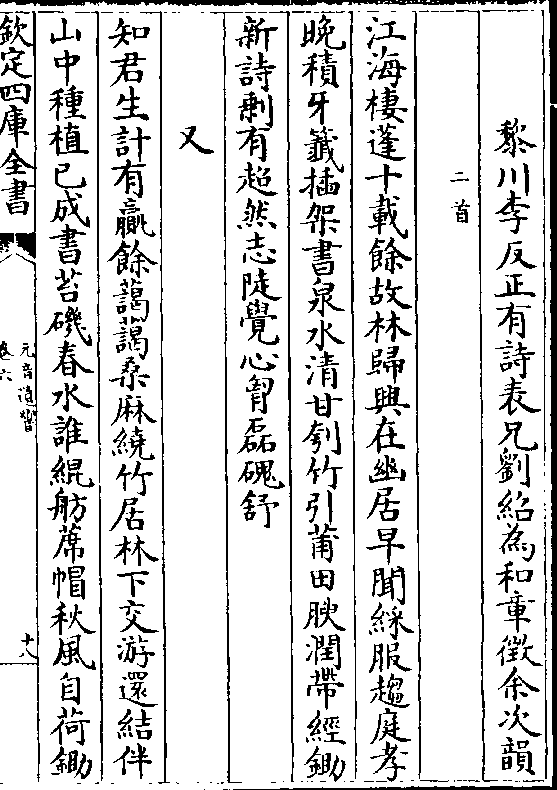 黎川李反正有詩表兄劉紹為和章徵余次韻
二首
江海棲蓬十載餘故林歸興在幽居早聞綵服趨庭孝
晩積牙籤揷架書泉水清甘刳竹引莆田腴潤帶經鋤
新詩剰有超然志陡覺心胷磊磈舒
又
知君生計有贏餘藹藹桑麻繞竹居林下交游還結伴
山中種植已成書苔磯春水誰緄舫蓆帽秋風自荷鋤
欽定四庫全書
元音遺響
卷六
十八